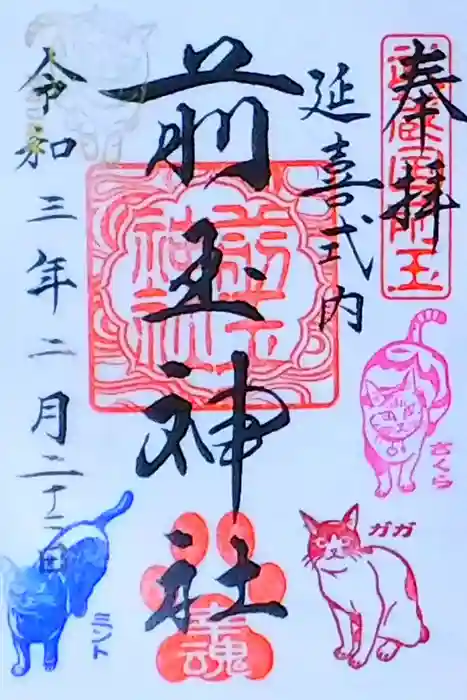 奉拝
延喜式内
前玉神社
前玉
神社
幸魂
令和三年二月二十二日
さくら
ガガ
ミント